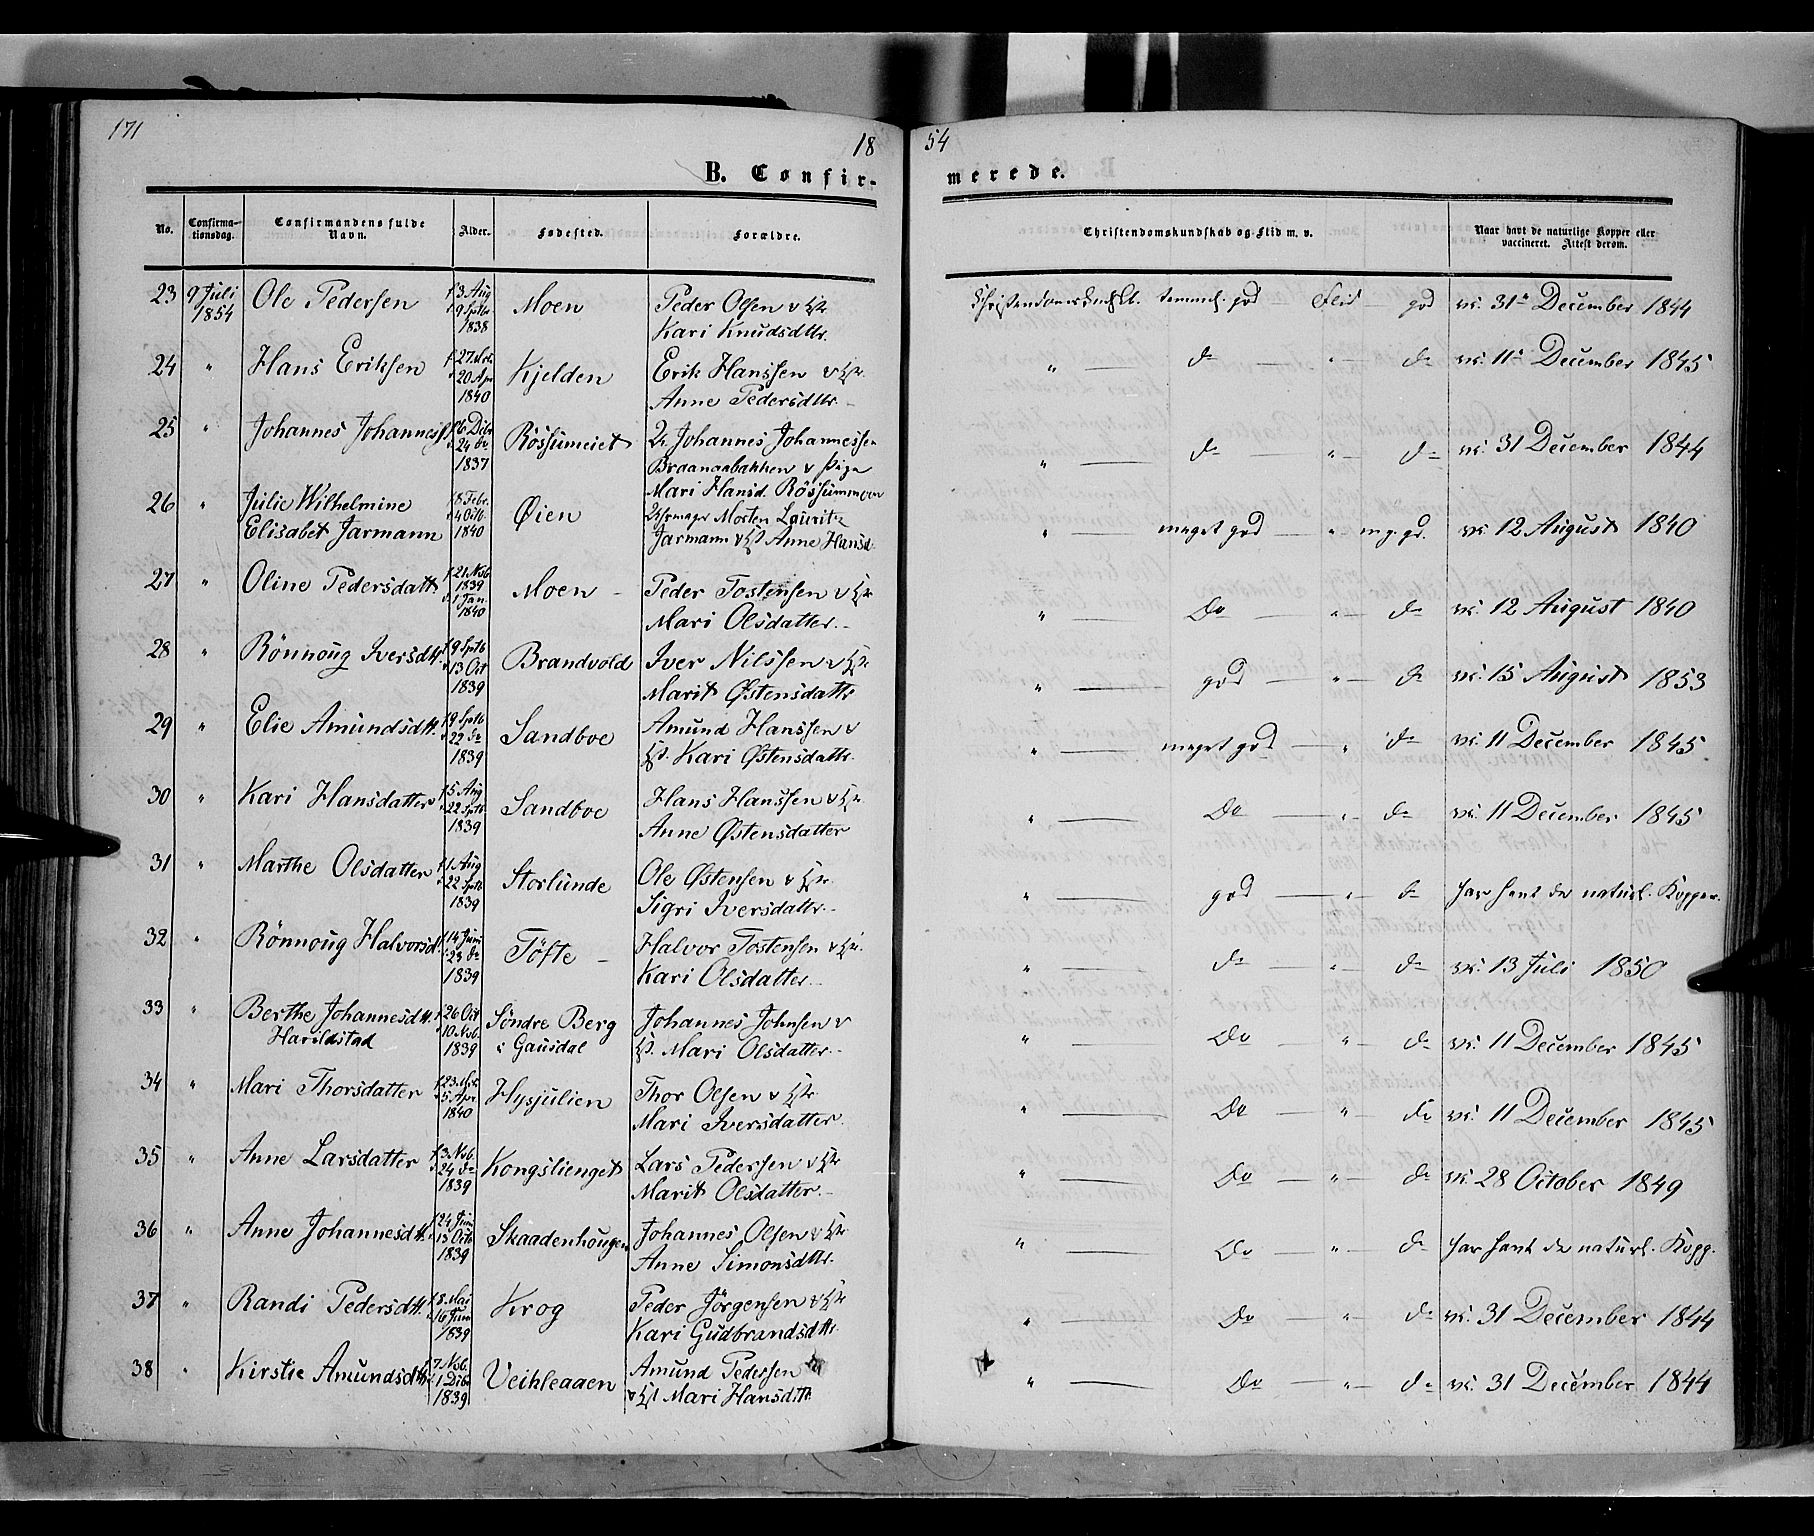 171
18
54
B. Confir-
merede.
No.
Confirma-
tionsdag.
Confirmandens fulde
Navn.
Alder.
Fødested.
Forældre.
Christendomskundskab og Flid m. v.
Naar havt de naturlige Kopper eller
vaccineret. Attest derom.
23 9 Juli 1854 Ole Pedersen f 3 Aug 9 Septbr 1838 Moen Peder Olsen
Kari Knudsdttr. temmel. god Flid god vc. 31 December 1844
24 " Hans Eriksen f 27 20 Apr 1840 Kjelden Erik Hanssen
Anne Pedersdttr. " do " do vc. 11 December 1845
25 " Johannes Johannes f 6 Dcbr 24 do 1837 Røssumeiet Johannes Johannessen
Braanaabakken v Pige
Mari Hansd. Røssummoen " do " do vc. 31 December 1844
26 " Julie Wilhelmine
Elisabet Jarmann f 8 Febr. 4 Octb. 1840 Øien Morten Lauritz
Jarmann Anne Hansd. " meget god " mg. gd. vc. 12 August 1840
27 " Oline Pedersdatt f 21 Nvb. 1839 1 Jan. 1840 Moen Peder Tostensen
Mari Olsdatter. " Do " do vc. 12 August 1840
28 " Rønnoug Iversdtt f 9 Sptb 13 Oct 1839 Brandvold Iver Nilssen
Marit Østensdattr " god " do vc. 15 August 1853
29 " Elie Amundsdtt. f 9 Sptb 22 do 1839 Sandboe Amund Hanssen v
Kari Østensdattr. " meget god " do vc. 11 December 1845
30 " Kari Hansdatter f 5 Aug 22 Sptb 1839 Sandboe Hans Hanssen
Anne Østensdatter " Do " do vc. 11 December 1845
31 " Marthe Olsdatter f 1 Aug 22 Sptb 1839 Storlunde Ole Østensen
Sigri Iversdattr. " god " do har havt de naturl. Kopper.
32 " Rønnoug Halvorsd. f 14 Juni 23 do 1839 Tøfte Halvor Tostensen
Kari Olsdatter. " do " do vc. 13 Juli 1850
33 " Berthe Johannesdtt.
Harildstad f 26 Oct 10 Nvb. 1839 Søndre Berg
i Gausdal Johannes Johnsen v
Mari Olsdatter. " Do " do vc. 11 December 1845
34 " Mari Thorsdatter f 23 5 Apr. 1840 Hysjulien Thor Olsen
Mari Iversdatter. " Do " do vc. 11 December 1845
35 " Anne Larsdatter f 3 Nvb. 24 do 1839 Kongslienget Lars Pedersen
Marit Olsdatter. " Do " do vc. 28 October 1849
36 " Anne Johannesdtt. f 24 Juni 13 Octb 1839 Skaadenhougen Johannes Olsen
Anne Simonsdttr. " Do " do har havt de naturl. Kopp.
37 " Randi Pedersdtt. f 8 Mai 16 Juni 1839 Krog Peder Jørgensen
Kari Gudbrandsdttr " Do " do vc. 31 December 1844
38 " Kirstie Amundsdtt f 7 Nvb. 1 Dcbr 1839 Veihleaaen Amund Pedersen
Mari Hansdtth " Do " do vc. 31 December 1844